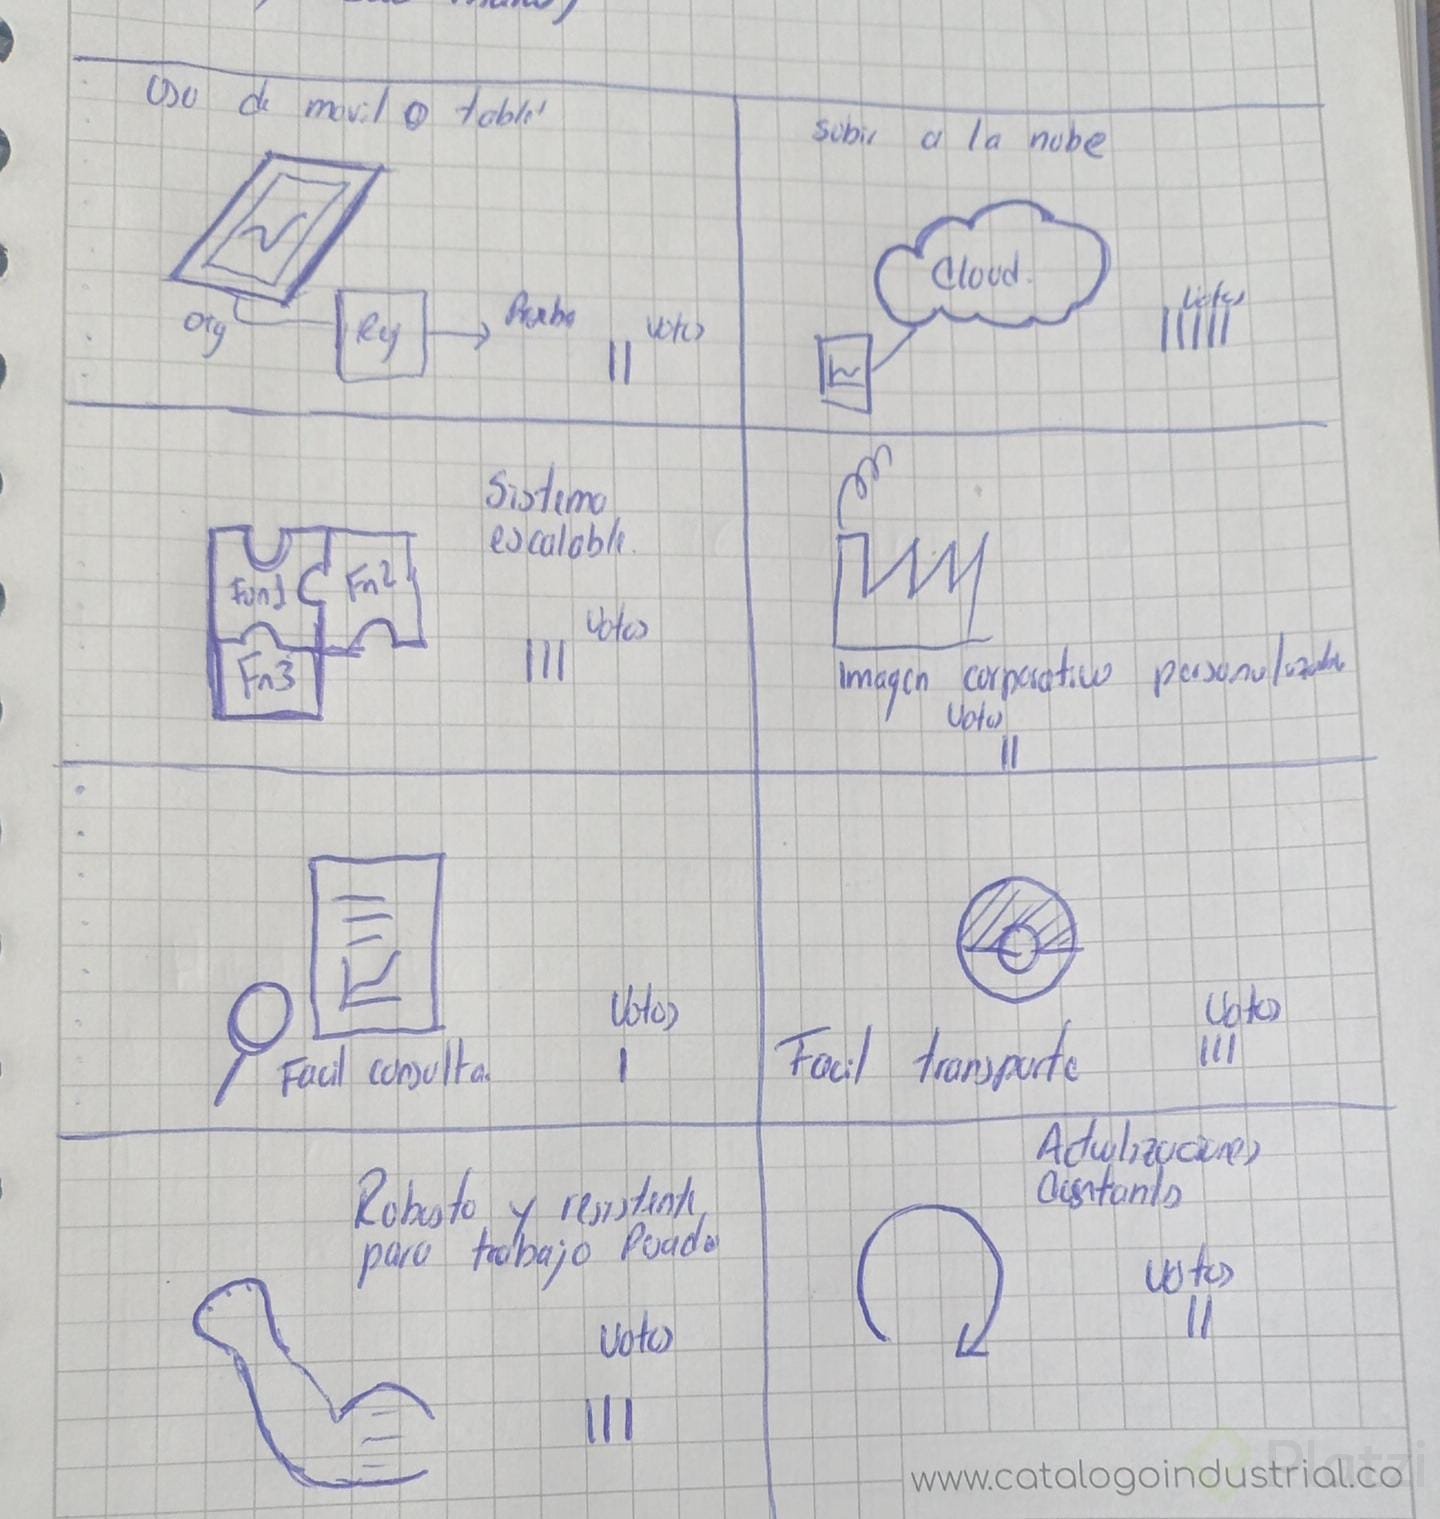 Uso de movil o tablet
Otg
Reg
Prueba
Votos
Subir a la nube
Cloud.
Votos
Sistema
escalable.
Fun1
Fn2
Fn3
Votos
Imagen corporativo personalizable
Votos
Facil consulta.
Votos
Facil transporte
Votos
Robusto y resistente
para trabajo Pesado
Votos
Actulizaciones
Constants
Votos
Platzi
www.catalogoindustrial.co